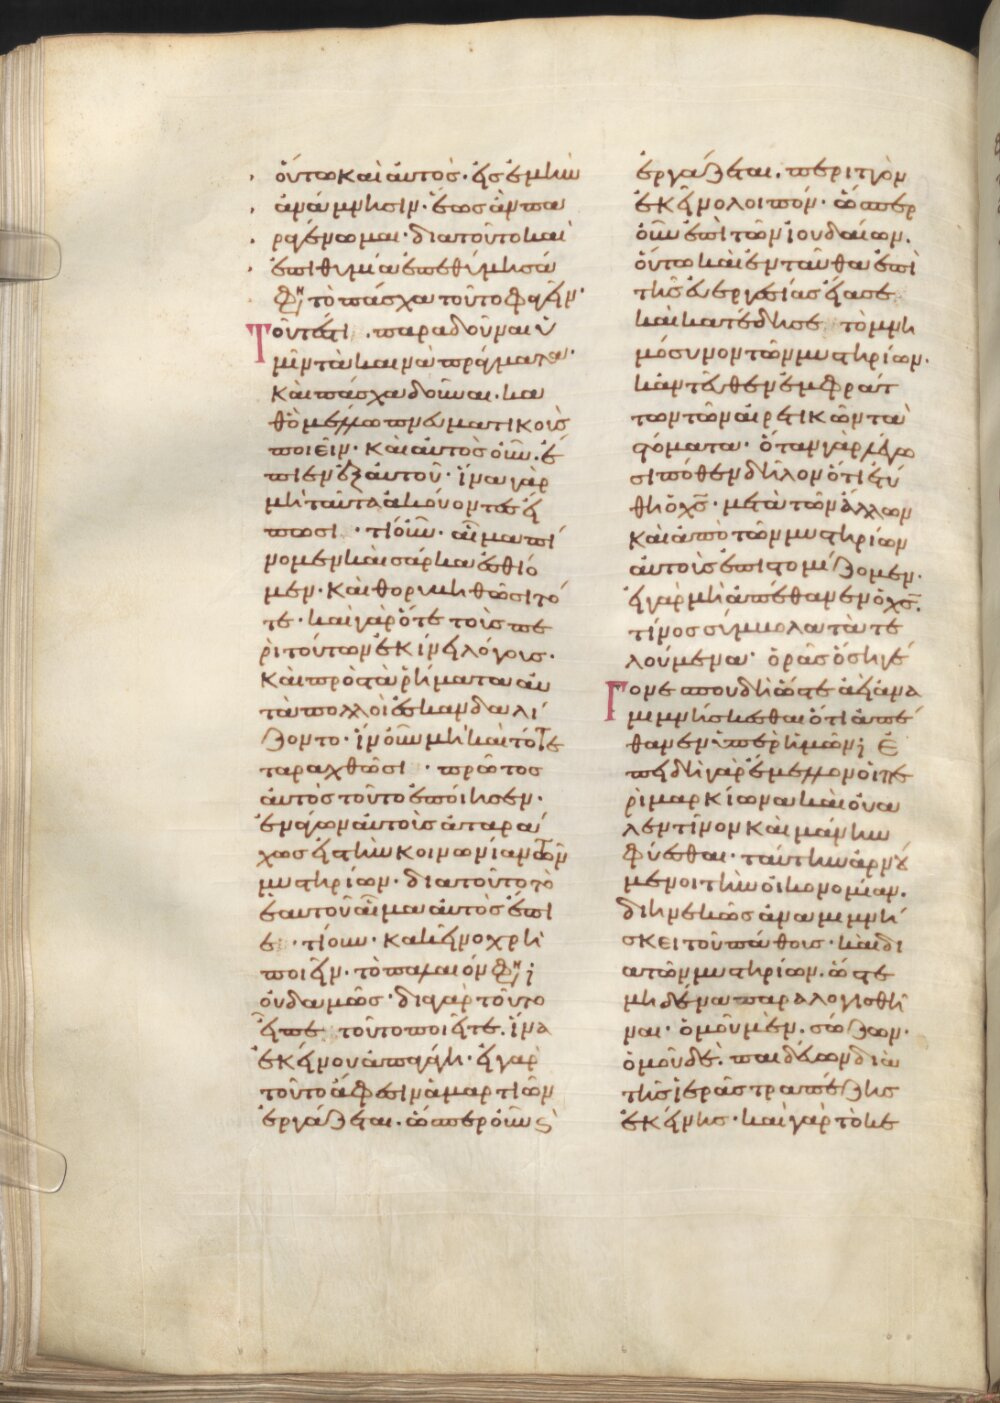 όυτω και άυτὸς· εἰς ἐμὴν
ἀνάμνησιν· ἕως ἂν πα
ργένωμαι· διατοῦτο καὶ
ἐπιθυμία ἐπεθύμησά
φη τὸ πάσχα τοῦτο φαγεῖν·
Τουτέστι, παραδοῦναι ὑ
μῖν τὰ καινὰ πράγματα·
καὶ πάσχα δοῦναι· κα
θὸ μέλλω πνευματικοὺς
ποιεῖν· καὶ αὐτὸς οὖν ἔ
πιεν ἐξ αὐτοῦ· ἵνα γὰρ
μὴ ταῦτα ἀκούοντες εἴ
πωσι· τί οὖν· αἷμα πί
νομεν καὶ σάρκα ἐσθίο
μεν· καὶ θορυβηθῶσι τό
τε· καὶ γὰρ ὅτε τοὺς πε
ρὶ τούτων ἐκίνει λόγους·
καὶ πρὸς τὰ ῥήματα αὐ
τὰ πολλοὶ ἐσκανδαλί
ζοντο· ἵν' οὖν μὴ καὶ τότε
ταραχθῶσι· πρῶτος
αὐτὸς τοῦτο ἐποίησεν·
ἐνάγων αὐτοὺς ἀταρά
χως εἰς τὴν κοινωνίαν τῶν
μυστηρίων· διατοῦτο τὸ
ἑαυτοῦ αἷμα αὐτὸς ἔπι
ε· τί οὖν· κἀκεῖνο χρὴ
ποιεῖν· τὸ παλαιόν φη;
οὐδαμῶς· διὰ γὰρ τοῦτο
εἶπε τοῦτο ποιεῖτε, ἵνα
ἐκείνου ἀπαγάγη· εἰ γὰρ
τοῦτο ἄφεσιν ἁμαρτιῶν
ἐργάζεται· ὥσπερ οὖν καὶ
ἐργάζεται· περιττὸν
ἐκεῖνο λοιπόν· ὥσπερ
οὖν ἐπὶ τῶν ἰουδαίων·
οὕτω καὶ ἐνταῦθα ἐπὶ
τῆς εὐεργεσίας εἴασε
καὶ κατέδησε τὸ μνη
μόσυνον τῶν μυστηρίων·
κἀντεῦθεν ἐμφράτ
των τῶν αἱρετικῶν τὰ
στόματα· ὅταν γὰρ λέγω
σι πόθεν δῆλον ὅτι ἐτύ
θη ὁ χς· μετὰ τῶν ἄλλων
καὶ ἀπὸ τῶν μυστηρίων
αὐτοὺς ἐπιστομίζομεν·
εἰ γὰρ μὴ ἀπέθανεν ὁ χς·
τίνος σύμβολα τὰ τε
λούμενα· ὁρᾶς ὅση γέ
Γονε σπουδὴ ὥστε ἀεὶ ἀνα
μιμνήσκεσθαι ὅτι ἀπέ
θανεν ὑπὲρ ἡμῶν; Ἐ
πειδὴ γὰρ ἔμελλον οἱ πε
ρὶ μαρκίωνα καὶ οὐα
λεντῖνον καὶ μάνην
φύεσθαι· ταύτην ἀρνού
μενοι τὴν οἰκονομίαν·
διηνεκῶς ἀναμιμνή
σκει τοῦ πάθους· καὶ δι
ὰ τῶν μυστηρίων· ὥστε
μηδένα παραλογισθῆ
ναι· ὁμοῦ μὲν· σώζων·
ὁμοῦ δὲ· παιδεύων διὰ
τῆς ἱερᾶς τραπέζης
ἐκείνης· καὶ γὰρ τὸ κε